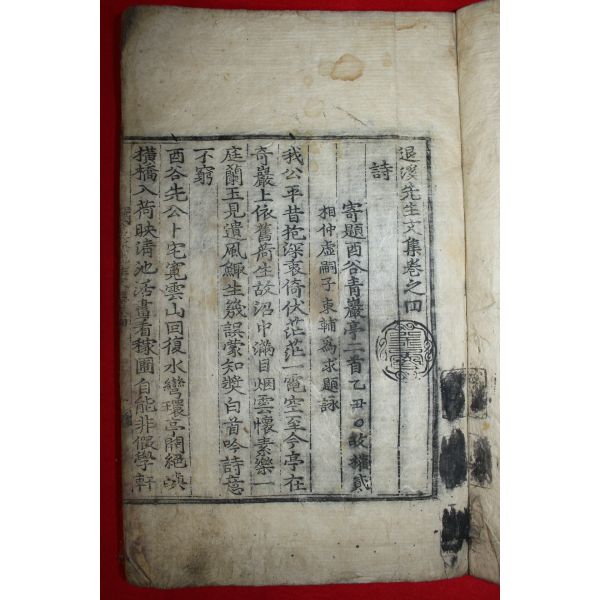 退溪先生文集卷之四
詩
寄題酉谷青巖亭二首乙丑○故權貳
相仲虛嗣子東輔爲求題詠
我公平昔抱深衷倚伏茫茫一電空至今亭在
奇巖上依舊荷生故沼中滿目烟雲懷素樂一
庭蘭玉見遺風鯫生幾誤蒙知奬白首吟詩意
不窮
酉谷先公卜宅寬雲山回復水彎環亭開絶嶼
橫橋入荷映淸池活畫看稼圃自能非假學軒